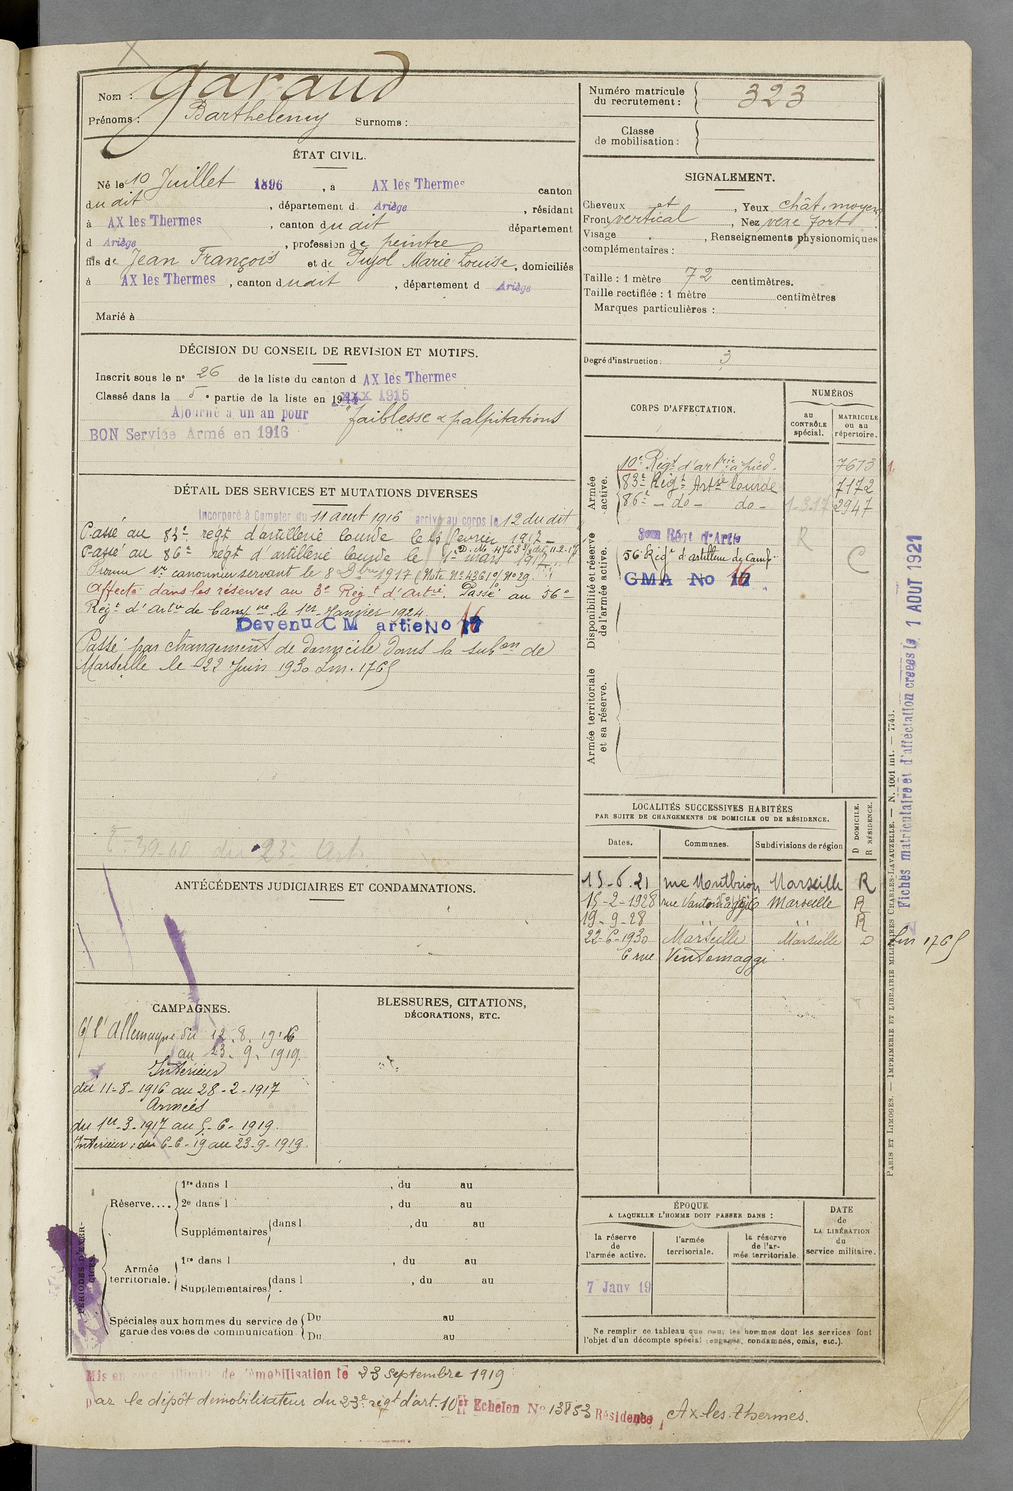 Nom : Garaud
Prénoms : Barthelemy Surnoms :
Numéro matricule du recrutement : 323
Classe de mobilisation :
ÉTAT CIVIL.
Né le 10 Juillet 1896, à AX les Thermes canton
du dit, département d Ariège, résidant
à AX les Thermes, canton du dit département
d Ariège, profession de peintre
fils de Jean François et de Pujol Marie Louise, domiciliés
à AX les Thermes, canton dudit, département d Ariège
Marié à
SIGNALEMENT.
Cheveux et, Yeux chât. moyen
Front vertical, Nez
Visage, Renseignements physionomiques
complémentaires :
Taille : 1 mètre 72 centimètres.
Taille rectifiée : 1 mètre centimètres
Marques particulières :
Degré d'instruction : 3
DÉCISION DU CONSEIL DE REVISION ET MOTIFS.
Inscrit sous le n° 26 de la liste du canton d AX les Thermes
Classé dans la 5e partie de la liste en 1915
Ajourné à un an pour faiblesse & palpitations
BON Service Armé en 1916
DÉTAIL DES SERVICES ET MUTATIONS DIVERSES
Incorporé à compter du 11 aout 1916 arrivé au corps le 12 du dit
Passé au 83e régt d'artillerie lourde le février 1917
Passé au 86e regt d'artillerie lourde le 1er mars 1917
Promu 1er canonnier servant le 8 1917 (Note N° 4361 N° 29.
Affecté dans les réserves au 3e Régt d'Artie. Passé au 56e
Régt d'Artie de Campne le 1er Janvier 1924.
Devenu C M artie No 16
Passé par changement de domicile dans la subon de
Marseille le 22 Juin 1930 Lm. 1765
CORPS D'AFFECTATION.
NUMÉROS
au CONTRÔLE spécial.
MATRICULE ou au répertoire.
Armée active.
10e Régt d'artrie à pied. 7613
83e Régt Artie lourde 7172
86e - do - do - 1-3-17 2947
Disponibilité et réserve de l'armée active.
3eme Régt d'Artie R
56e Régt d'artillerie de Camp C
CMA No 16
Armée territoriale et sa réserve.
LOCALITÉS SUCCESSIVES HABITÉES
PAR SUITE DE CHANGEMENTS DE DOMICILE OU DE RÉSIDENCE.
Dates. Communes. Subdivisions de région D DOMICILE. R RÉSIDENCE.
15-6.21 rue Montbrion Marseille R
15-2-1928 Marseille R
19-9-28 " " " " R
22-6-1930 Marseille Marseille D Lm 1765
6 rue Ventomaggi
ANTÉCÉDENTS JUDICIAIRES ET CONDAMNATIONS.
CAMPAGNES.
C/ l'Allemagne du 12.8.1916
au 23.9.1919.
Intérieur
du 11-8-1916 au 28-2-1917
Armées
du 1er-3-1917 au 5-6-1919.
Interieur : du 6-6-19 au 23-9-1919.
BLESSURES, CITATIONS,
DÉCORATIONS, ETC.
PÉRIODES D'EXERCICES.
Réserve.... 1re dans l, du au
2e dans l, du au
Supplémentaires dans l, du au
Armée territoriale. 1re dans l, du au
Supplémentaires dans l, du au
Spéciales aux hommes du service de garde des voies de communication Du au
Du au
ÉPOQUE
A LAQUELLE L'HOMME DOIT PASSER DANS :
la réserve de l'armée active.
l'armée territoriale.
la réserve de l'armée territoriale.
DATE de LA LIBÉRATION du service militaire.
7 Janv 19
Ne remplir ce tableau que pour les hommes dont les services font
l'objet d'un décompte spécial (engagés, condamnés, omis, etc.).
Mis en congé illimité de démobilisation le 23 septembre 1919
par le dépôt démobilisateur du 23e régt d'art. 10e Echelon No 13853 Résidence Ax-les-Thermes.
Fiches matriculaire et d'affectation créées le 1 AOUT 1921
PARIS ET LIMOGES. — IMPRIMERIE ET LIBRAIRIE MILITAIRES CHARLES-LAVAUZELLE. — N. 1001 int. — 7743.